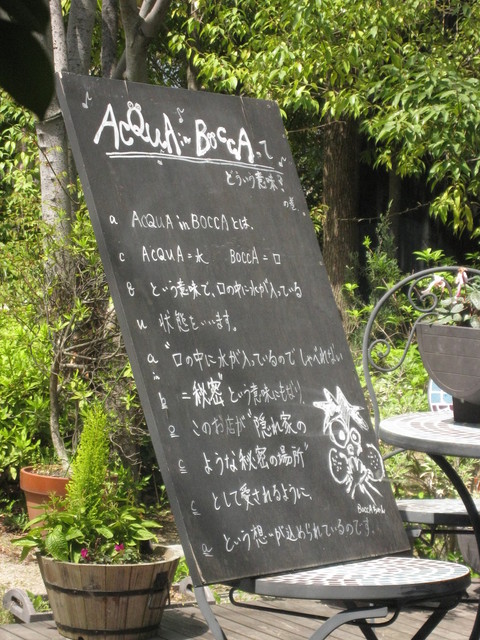 ACQUA in BOCCAって
どういう意味?
の巻。
a ACQUA in BOCCAとは、
c ACQUA=水 BOCCA=口
q という意味で、口の中に水が入っている
u 状態をいいます。
a "口の中に水が入っているので しゃべれない
in
b =秘密"という意味にもなり、
o このお店が"隠れ家の
c ような秘密の場所"
c として愛されるように、
a という想いが込められているのです。